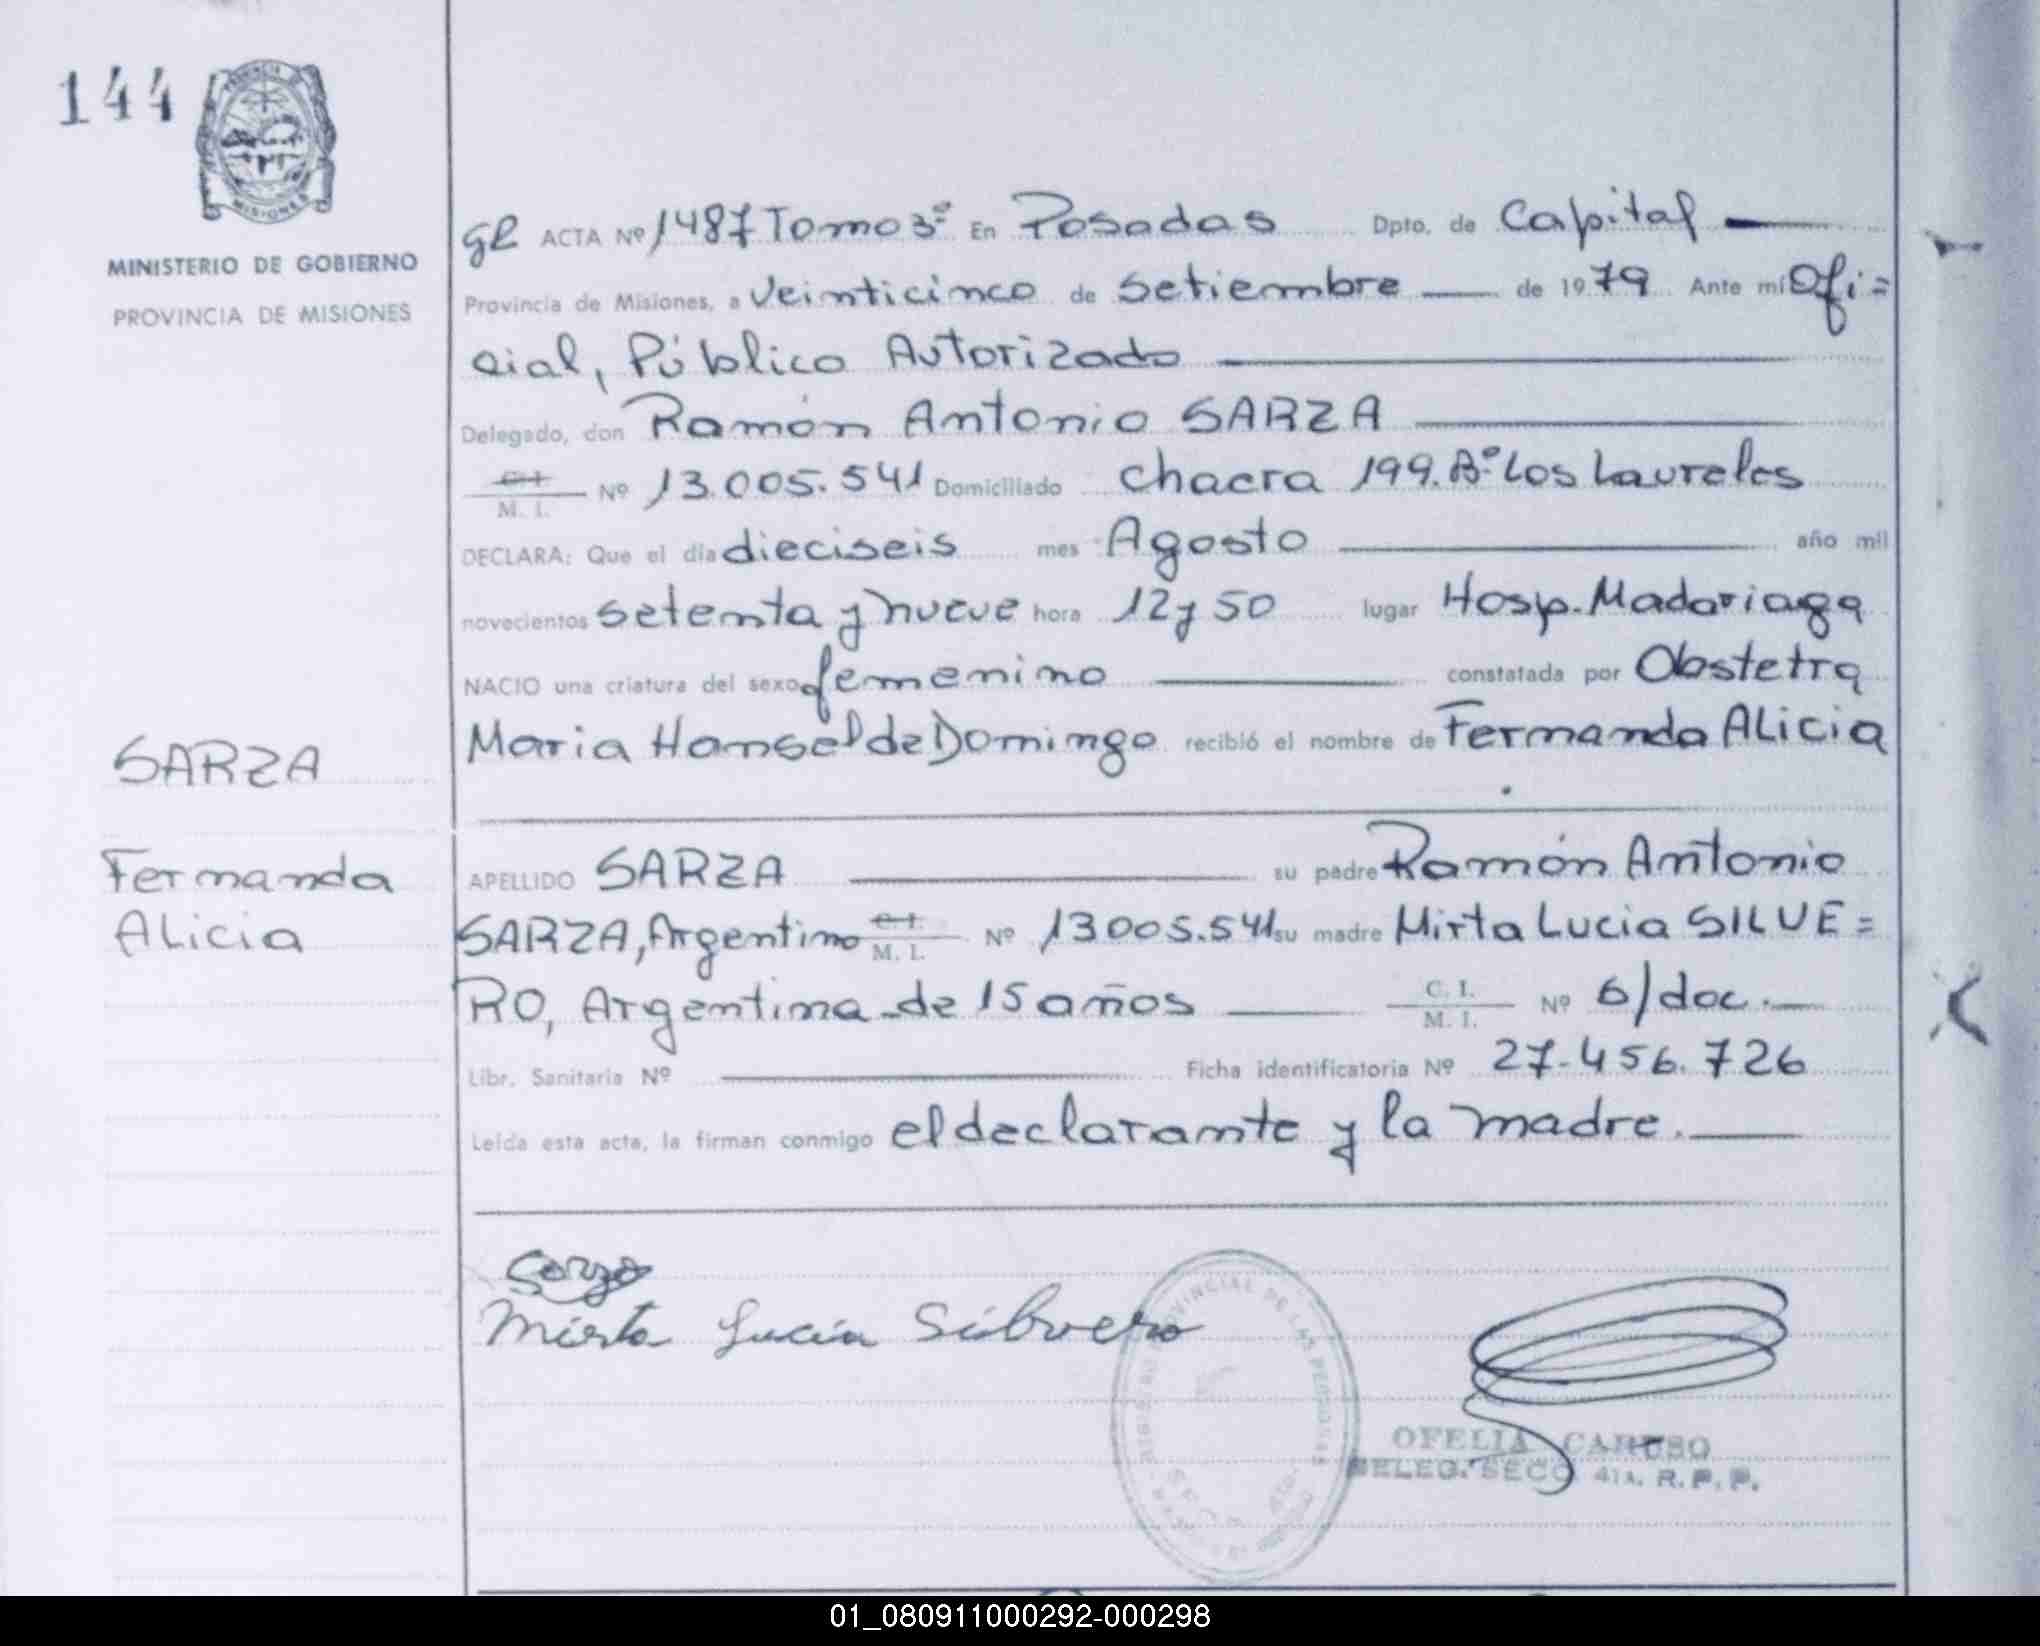 144
MINISTERIO DE GOBIERNO
PROVINCIA DE MISIONES
gR ACTA Nº 1487 Tomo 3º En Posadas Dpto. de Capital
Provincia de Misiones, a veinticinco de setiembre de 1979 Ante mí Ofi=
cial, Público Autorizado
Delegado, don Ramón Antonio SARZA
C.I. M. I. Nº 13.005.541 Domiciliado chacra 199. Bº Los Laureles
DECLARA: Que el día dieciseis mes Agosto año mil
novecientos setenta y nueve hora 12 y 50 lugar Hosp. Madariaga
NACIO una criatura del sexo femenino constatada por Obstetra
Maria Hansel de Domingo recibió el nombre de Fernanda ALicia
SARZA
Fernanda
ALicia
APELLIDO SARZA su padre Ramón Antonio
SARZA, Argentino C.I. M. I. Nº 13005.541 su madre Mirta Lucia SILVE=
RO, Argentina de 15 años C. I. M. I. Nº s/doc.
Libr. Sanitaria Nº Ficha identificatoria Nº 27.456.726
Leída esta acta, la firman conmigo el declarante y la madre.
Sarza
Mirta Lucia Silvero
PROVINCIAL DE LAS PERSONAS
OFELIA CARUSO
DELEG. SECC 41A. R. P. P.
01_080911000292-000298